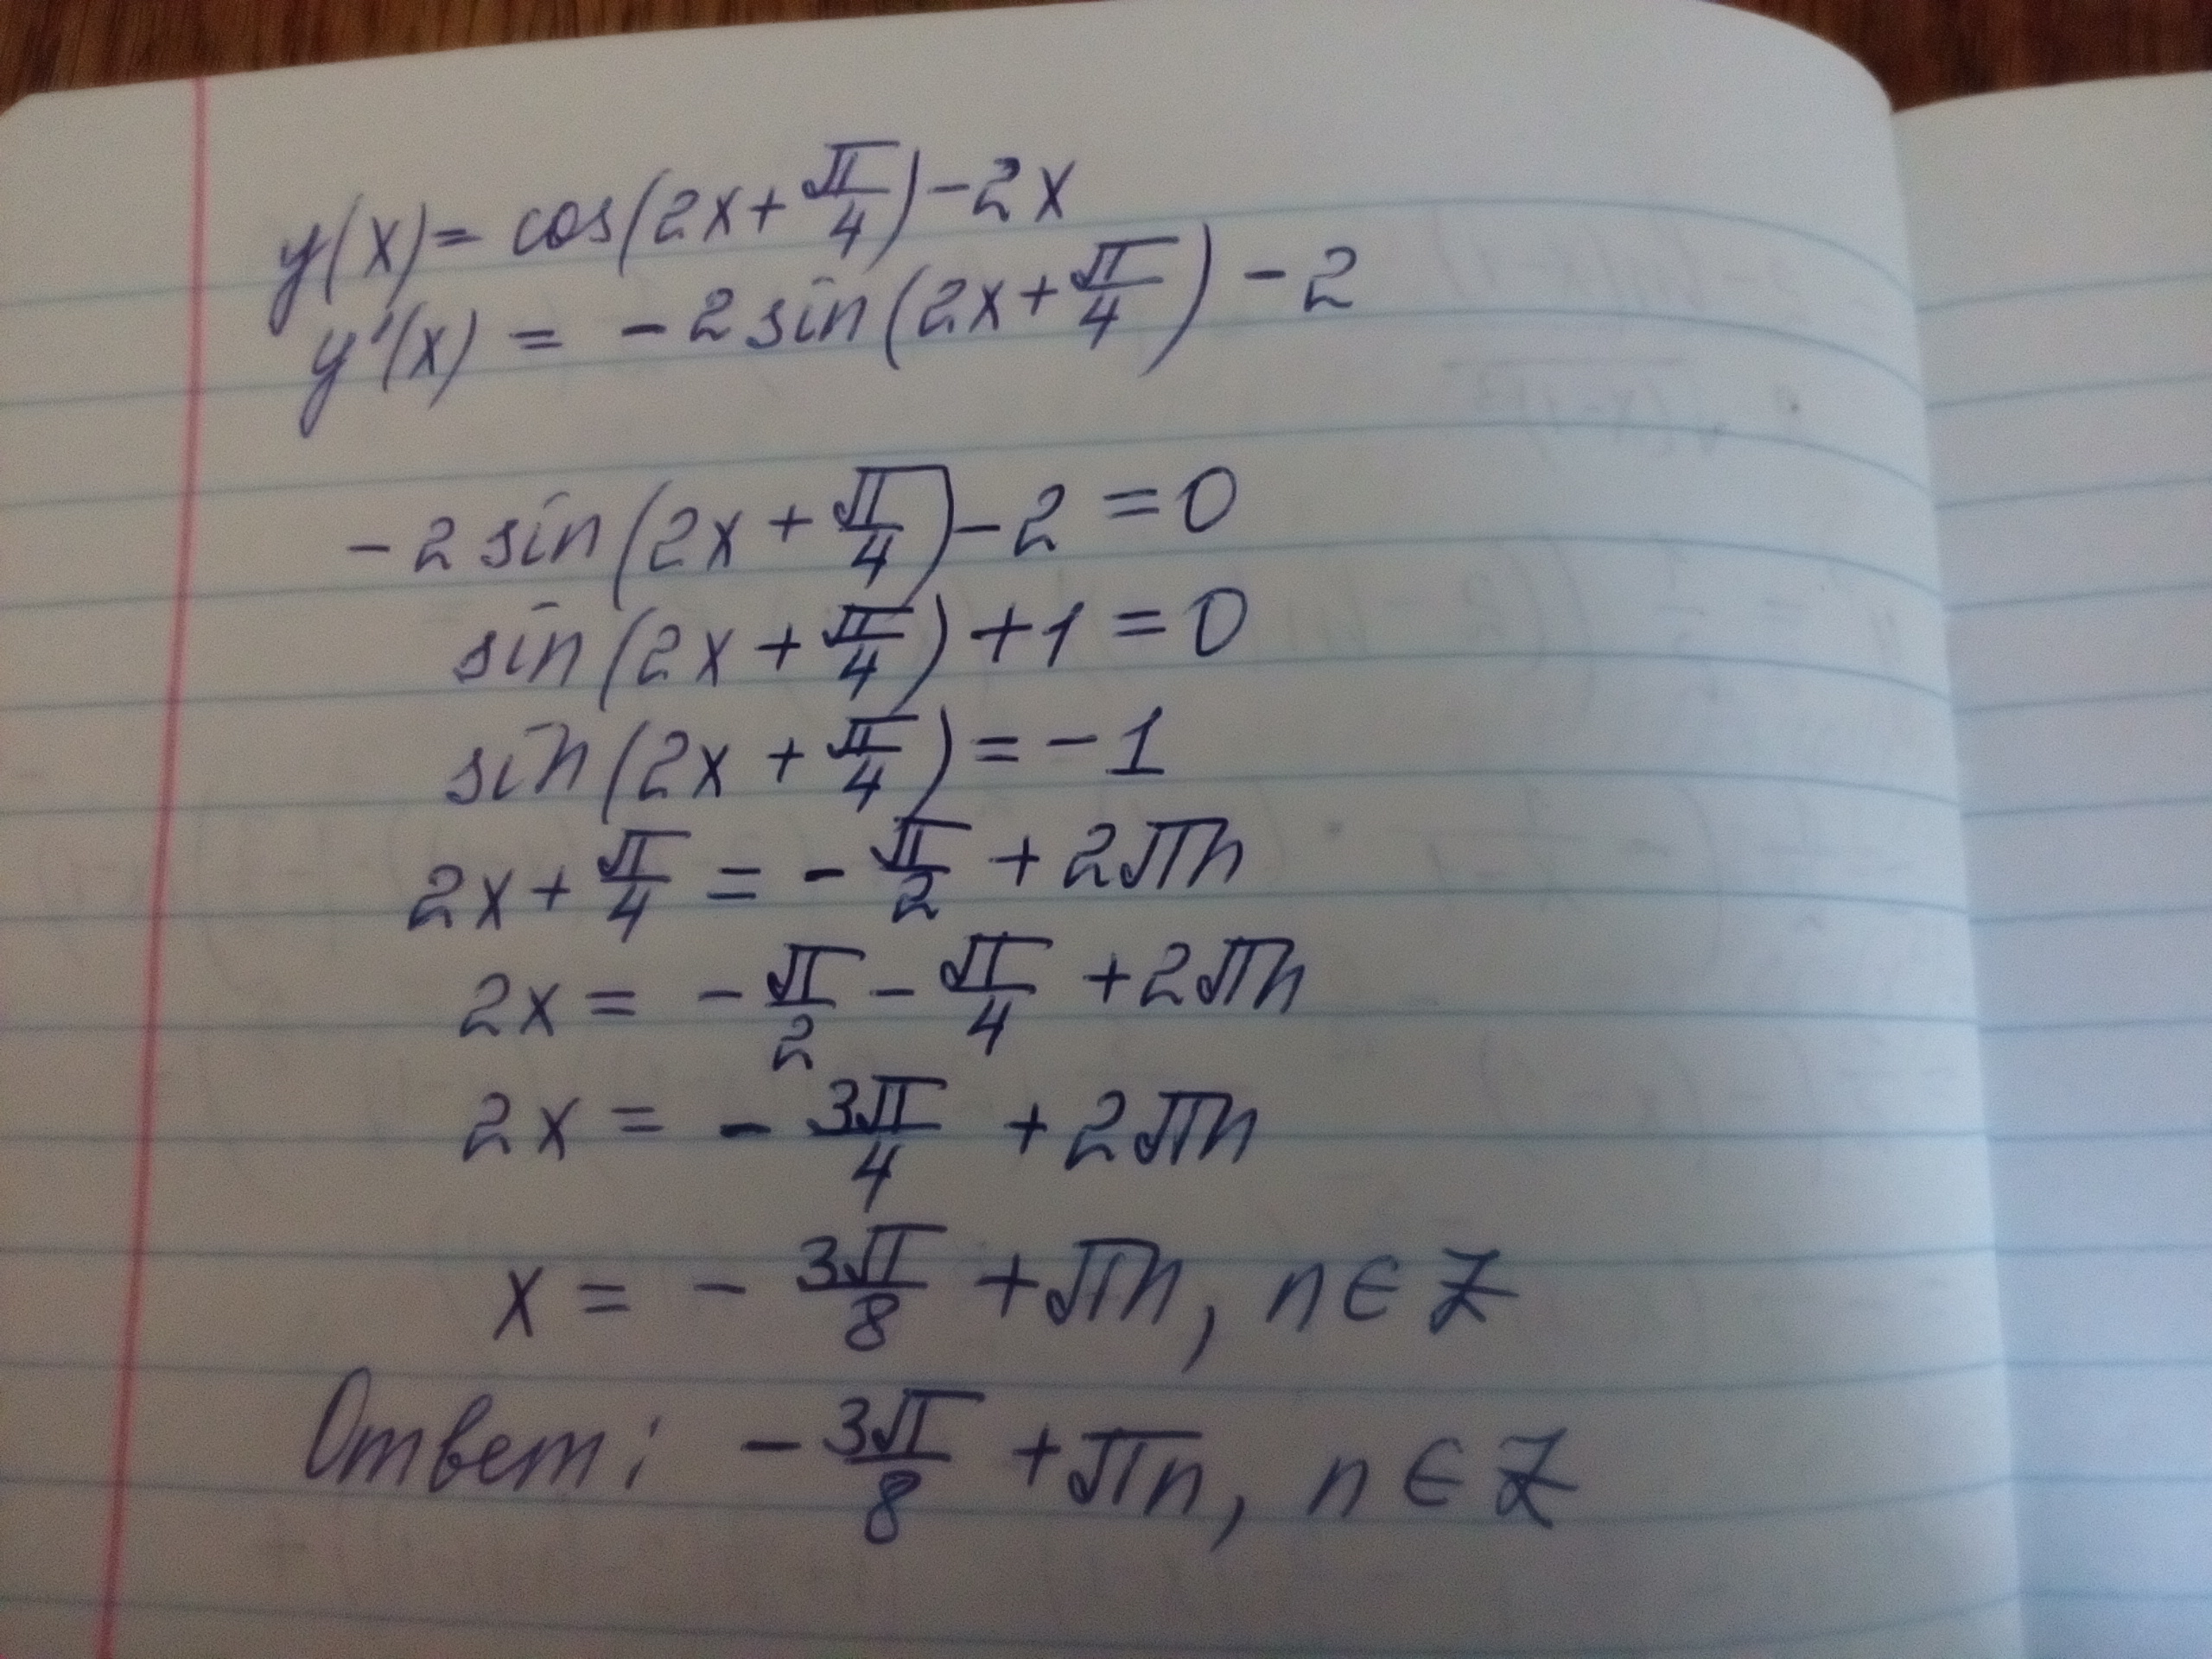 y(x) = cos(2x + π/4) - 2x
y'(x) = -2 sin(2x + π/4) - 2
-2 sin(2x + π/4) - 2 = 0
sin(2x + π/4) + 1 = 0
sin(2x + π/4) = -1
2x + π/4 = -π/2 + 2πn
2x = -π/2 - π/4 + 2πn
2x = -3π/4 + 2πn
x = -3π/8 + πn, n ∈ Z
Ответ: -3π/8 + πn, n ∈ Z